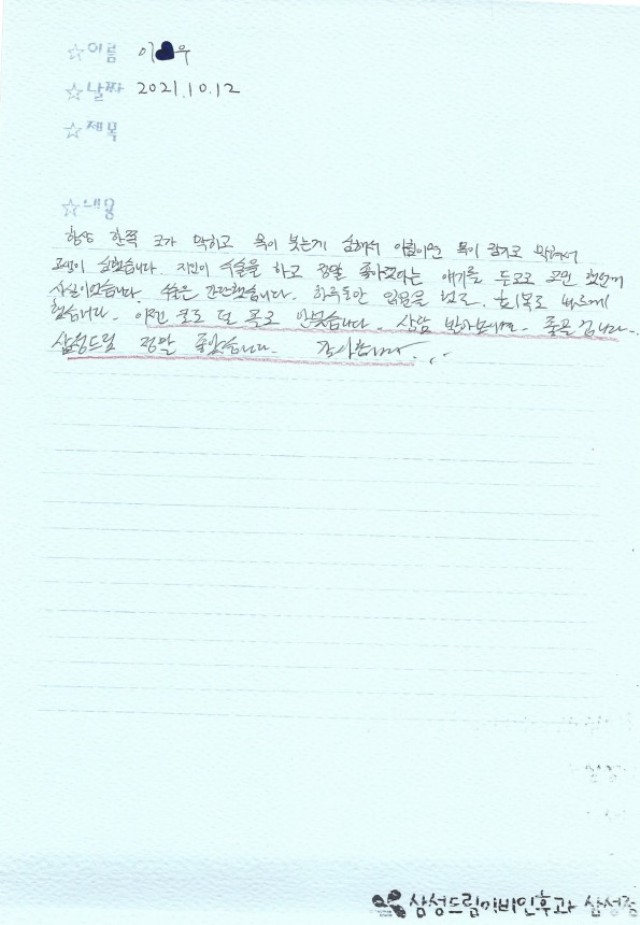 ☆이름 이♥우
☆날짜 2021.10.12
☆제목
☆내용
항상 한쪽 코가 막히고 목이 붓는게 심해서 아침이면 목이 막혀서
고생이 심했습니다. 지인이 수술을 하고 정말 좋아졌다는 얘기를 듣고 고민 했었는데
사실이었습니다. 수술은 간단했습니다. 하루동안 입원을 했고, 회복도 빠르게
했습니다. 이젠 코도 덜 골고 안붓습니다. 상담 받아보시면 좋을겁니다..
삼성드림 정말 좋았습니다. 감사합니다...
삼성드림이비인후과 삼성점